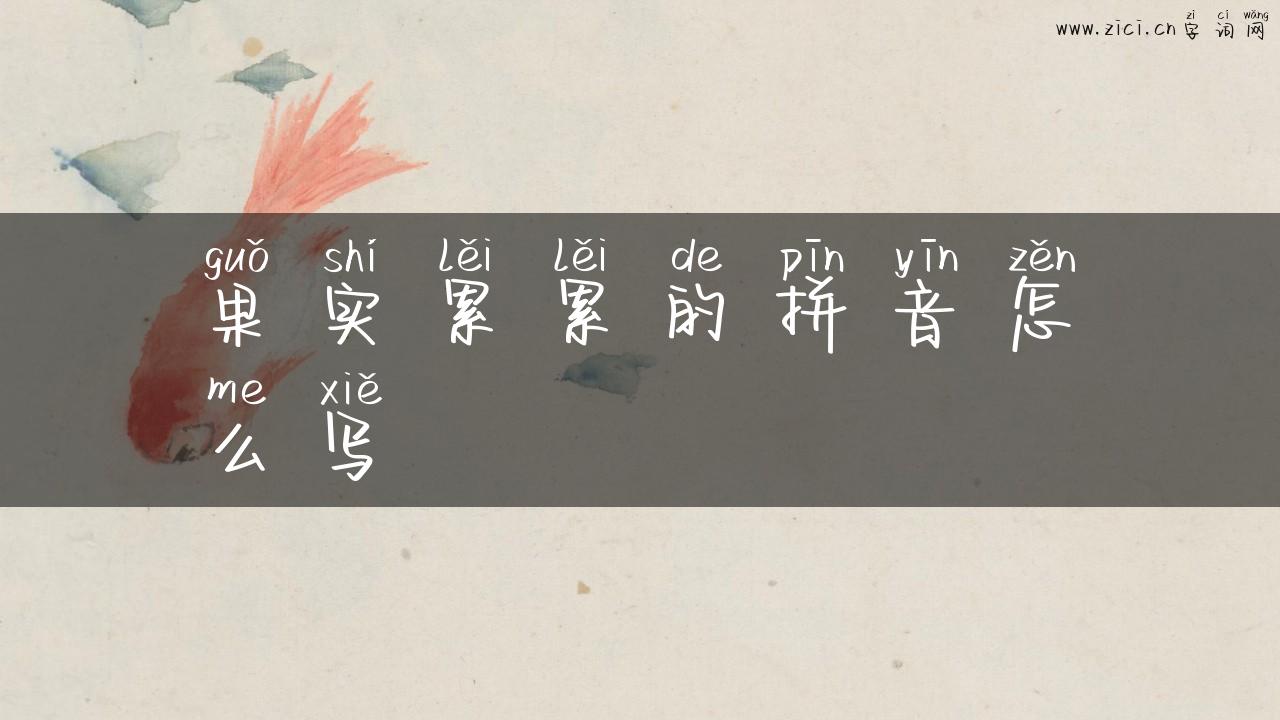 zì cí wǎng
www.zici.cn 字词网
guǒ shí lěi lěi de pīn yīn zěn
果实累累的拼音怎
me xiě
么写